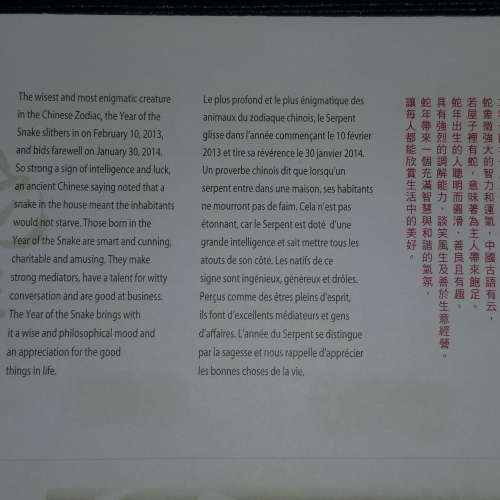 The wisest and most enigmatic creature
in the Chinese Zodiac, the Year of the
Snake slithers in on February 10, 2013,
and bids farewell on January 30, 2014.
So strong a sign of intelligence and luck,
an ancient Chinese saying noted that a
snake in the house meant the inhabitants
would not starve. Those born in the
Year of the Snake are smart and cunning,
charitable and amusing. They make
strong mediators, have a talent for witty
conversation and are good at business.
The Year of the Snake brings with
it a wise and philosophical mood and
an appreciation for the good
things in life.
Le plus profond et le plus énigmatique des
animaux du zodiaque chinois, le Serpent
glisse dans l'année commençant le 10 février
2013 et tire sa révérence le 30 janvier 2014.
Un proverbe chinois dit que lorsqu'un
serpent entre dans une maison, ses habitants
ne mourront pas de faim. Cela n'est pas
étonnant, car le Serpent est doté d'une
grande intelligence et sait mettre tous les
atouts de son côté. Les natifs de ce
signe sont ingénieux, généreux et drôles.
Perçus comme des êtres pleins d'esprit,
ils font d'excellents médiateurs et gens
d'affaires. L'année du Serpent se distingue
par la sagesse et nous rappelle d'apprécier
les bonnes choses de la vie.
蛇象徵強大的智力和運氣，中國古語有云，
若屋子裡有蛇，意味著為主人帶來飽足。
蛇年出生的人聰明而圓滑，善良且有趣。
具有強烈的調解能力，談笑風生及善於生意經營。
蛇年帶來一個充滿智慧與和諧的氣氛，
讓每人都能欣賞生活中的美好。